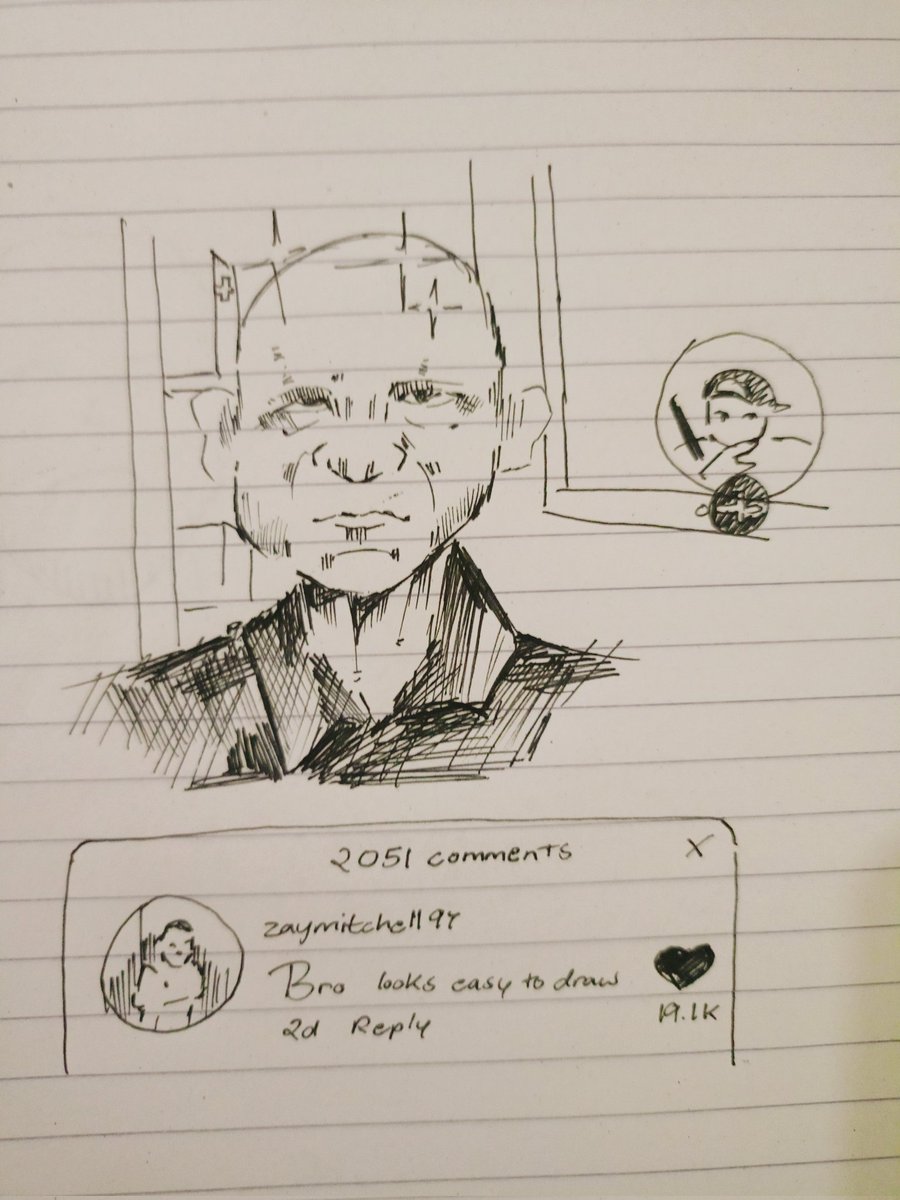 2051 comments X
zaymitchell97
Bro looks easy to draw
2d Reply
19.1K